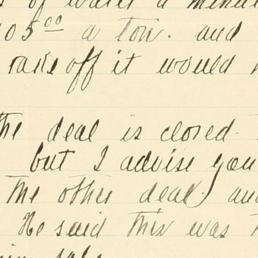 of water a minu
105 00 a ton. and
rake off it would
the deal is closed.
but I advise you
the other deal and
He said this was